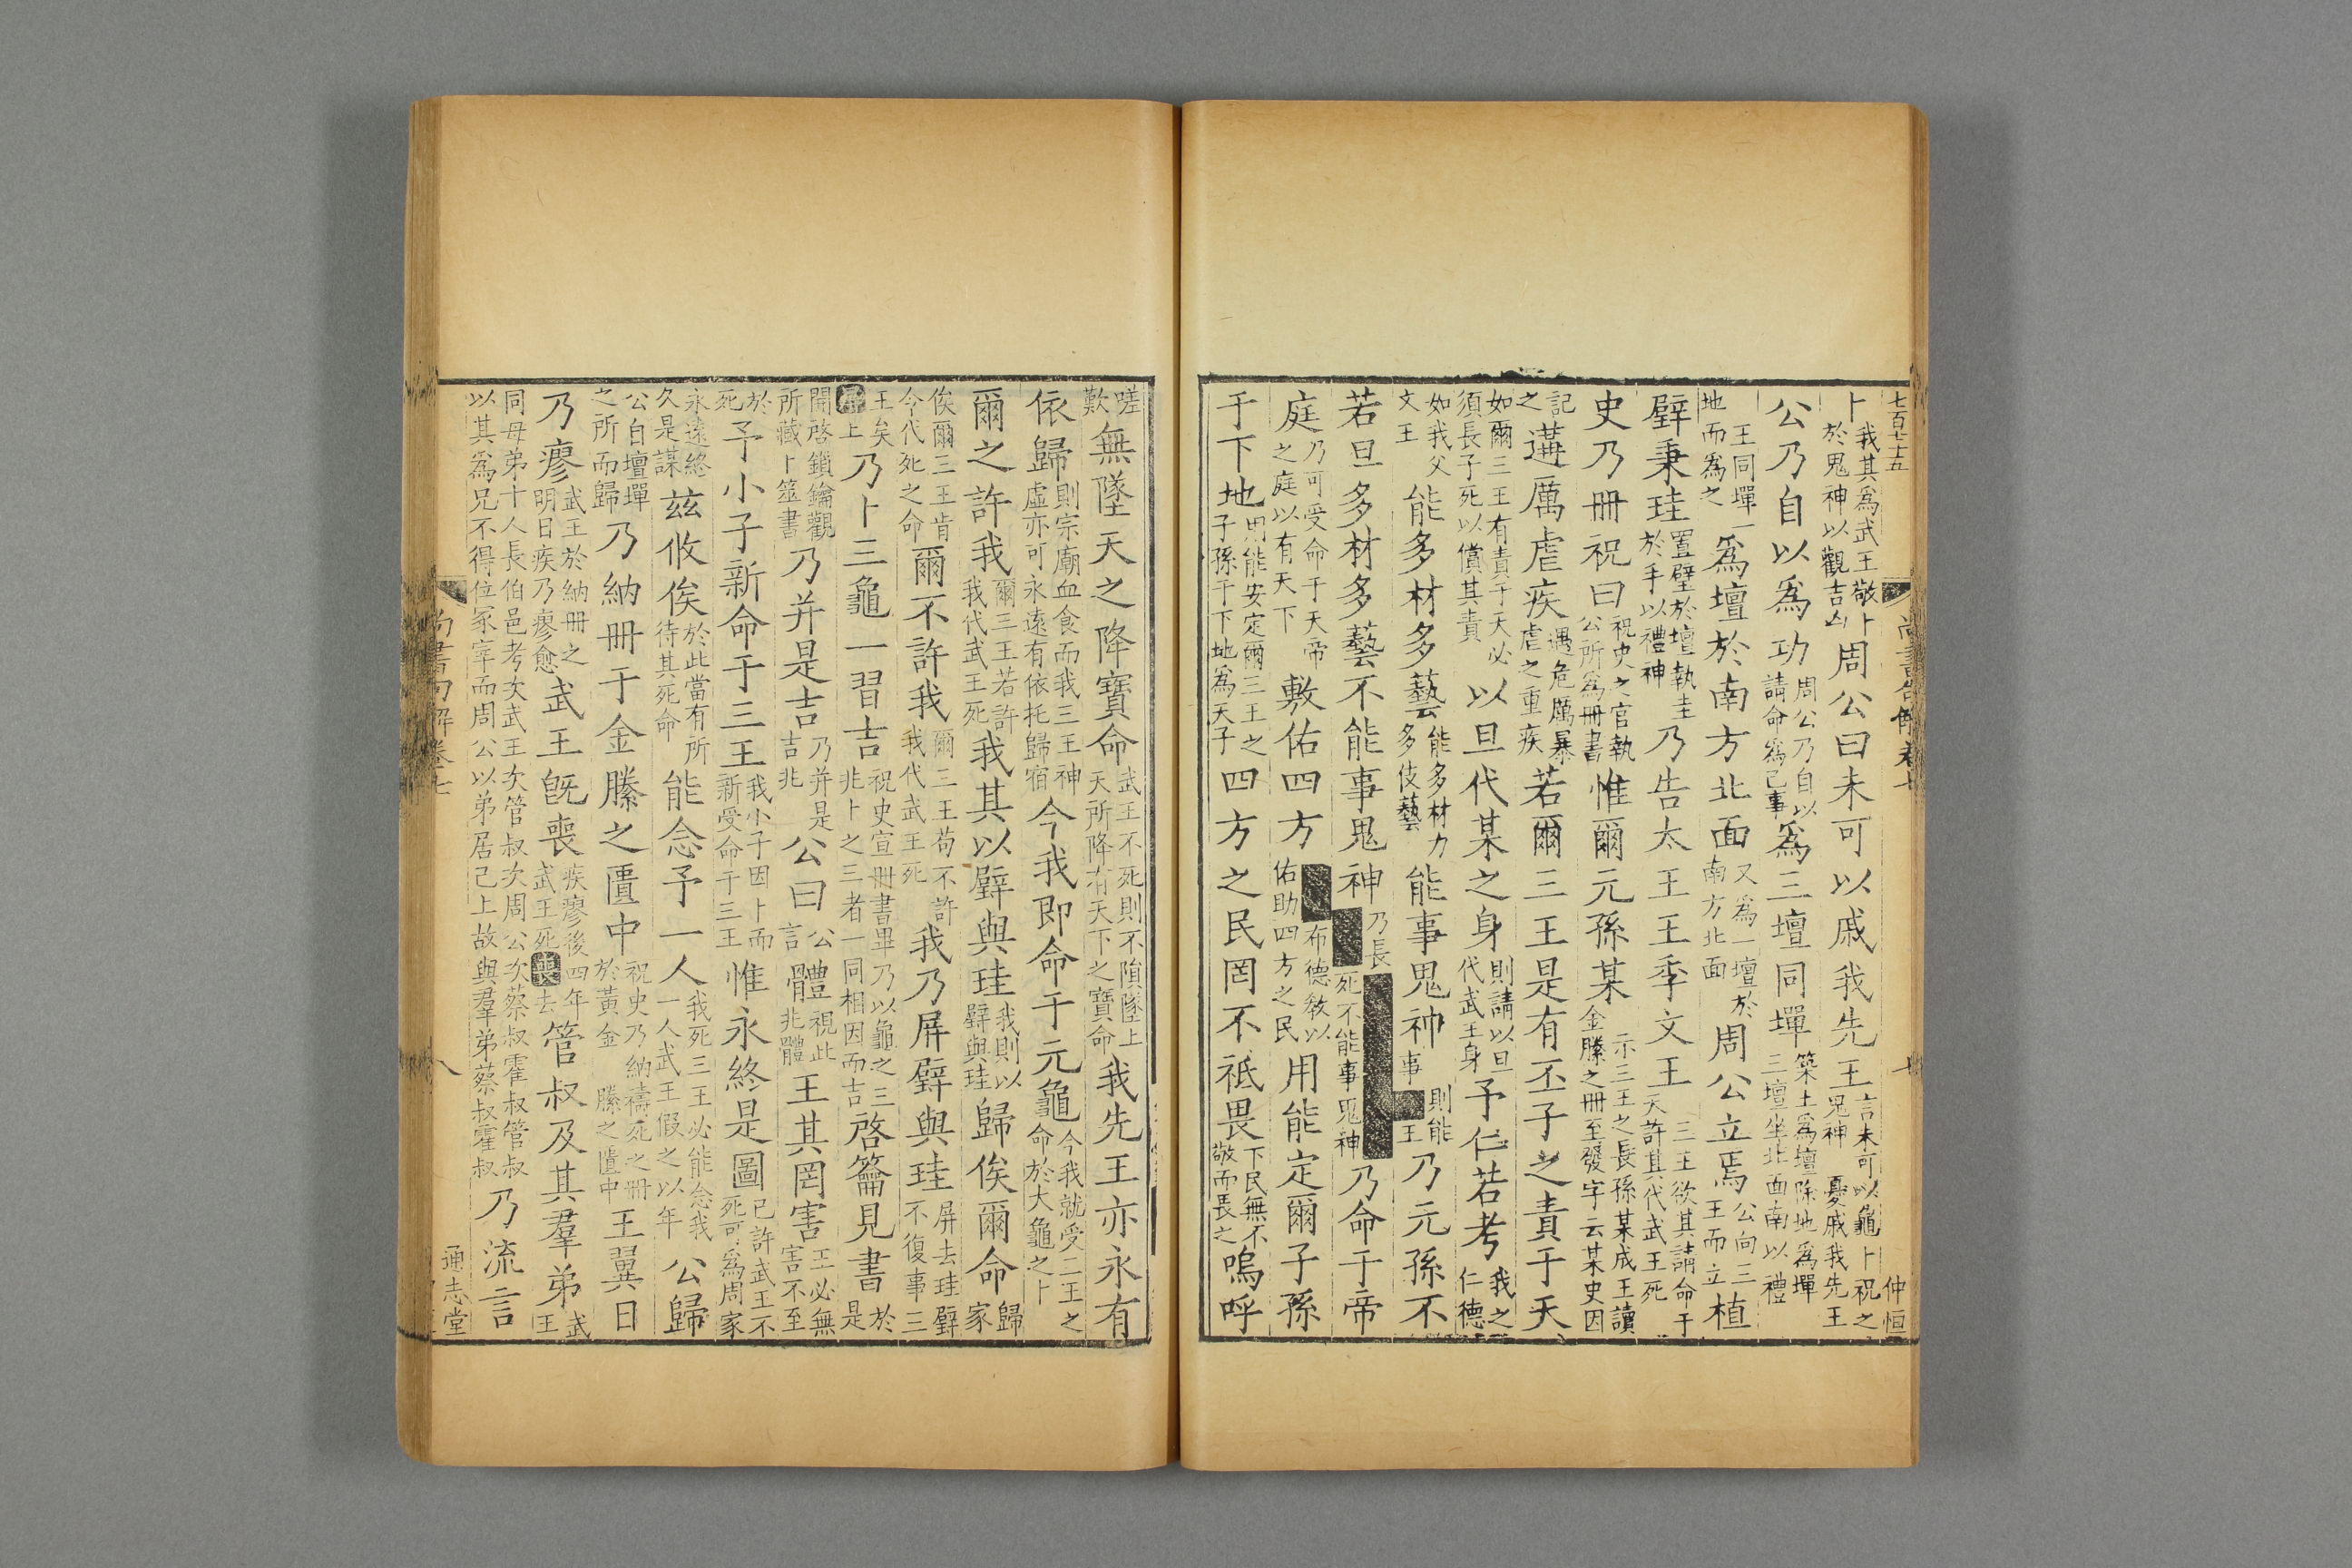 七百七十五 尚書句解卷七 七 仲恒
卜我其爲武王敬卜於鬼神以觀吉凶周公曰未可以戚我先王言未可以龜卜祝之鬼神憂戚我先王
公乃自以爲功周公乃自以請命爲己事爲三壇同墠築土爲壇除地爲墠三壇坐北面南以禮
王同墠一地而爲之爲壇於南方北面又爲一壇於南方北面周公立焉公向三王而立植
璧秉珪置璧於壇執圭於手以禮神乃告太王王季文王三王欲其請命于天許其代武王死
史乃冊祝曰祝史之官執公所爲冊書惟爾元孫某示三王之長孫某成王讀金縢之冊至發字云某史因
記之遘厲虐疾遇危厲暴虐之重疾若爾三王是有丕子之責于天
如爾三王有責于天必須長子死以償其責以旦代某之身則請以旦代武王身予仁若考我之仁德
如我父文王能多材多藝能多材力多伎藝能事鬼神則能事乃元孫不
若旦多材多藝不能事鬼神乃長死不能事鬼神乃命于帝
庭乃可受命于天帝之庭以有天下敷佑四方布德敎以佑助四方之民用能定爾子孫
于下地用能安定爾三王之子孫于下地爲天子四方之民罔不祗畏下民無不敬而畏之嗚呼
嗟歎無墜天之降寶命武王不死則不隕墜上天所降有天下之寶命我先王亦永有
依歸則宗廟血食而我三王神虛亦可永遠有依托歸宿今我即命于元龜今我就受三王之命於大龜之卜
爾之許我爾三王若許我代武王死我其以璧與珪我則以璧與珪歸俟爾命歸家
俟爾三王肯今代死之命爾不許我爾三王苟不許我代武王死我乃屏璧與珪屏去珪璧不復事三
王矣屏上乃卜三龜一習吉祝史宣冊書畢乃以龜之三兆卜之三者一同相因而吉啓籥見書於是
開啓鎖鑰觀所藏卜筮書乃并是吉乃并是吉兆公曰公言體視此兆體王其罔害王必無害不至
於死予小子新命于三王我小子因卜而新受命于三王惟永終是圖已許武王不死可爲周家
永遠終久是謀茲攸俟於此當有所待其死命能念予一人我死三王必能念我一人武王假之以年公歸
公自壇墠之所而歸乃納冊于金縢之匱中祝史乃納禱死之冊於黃金縢之匱中王翼日
乃瘳武王於納冊之明日疾乃瘳愈武王旣喪疾瘳後四年武王死喪去管叔及其羣弟武王
同母弟十人長伯邑考次武王次管叔次周公次蔡叔霍叔管叔以其爲兄不得位冢宰而周公以弟居己上故與羣弟蔡叔霍叔乃流言
尚書句解卷七 八 通志堂